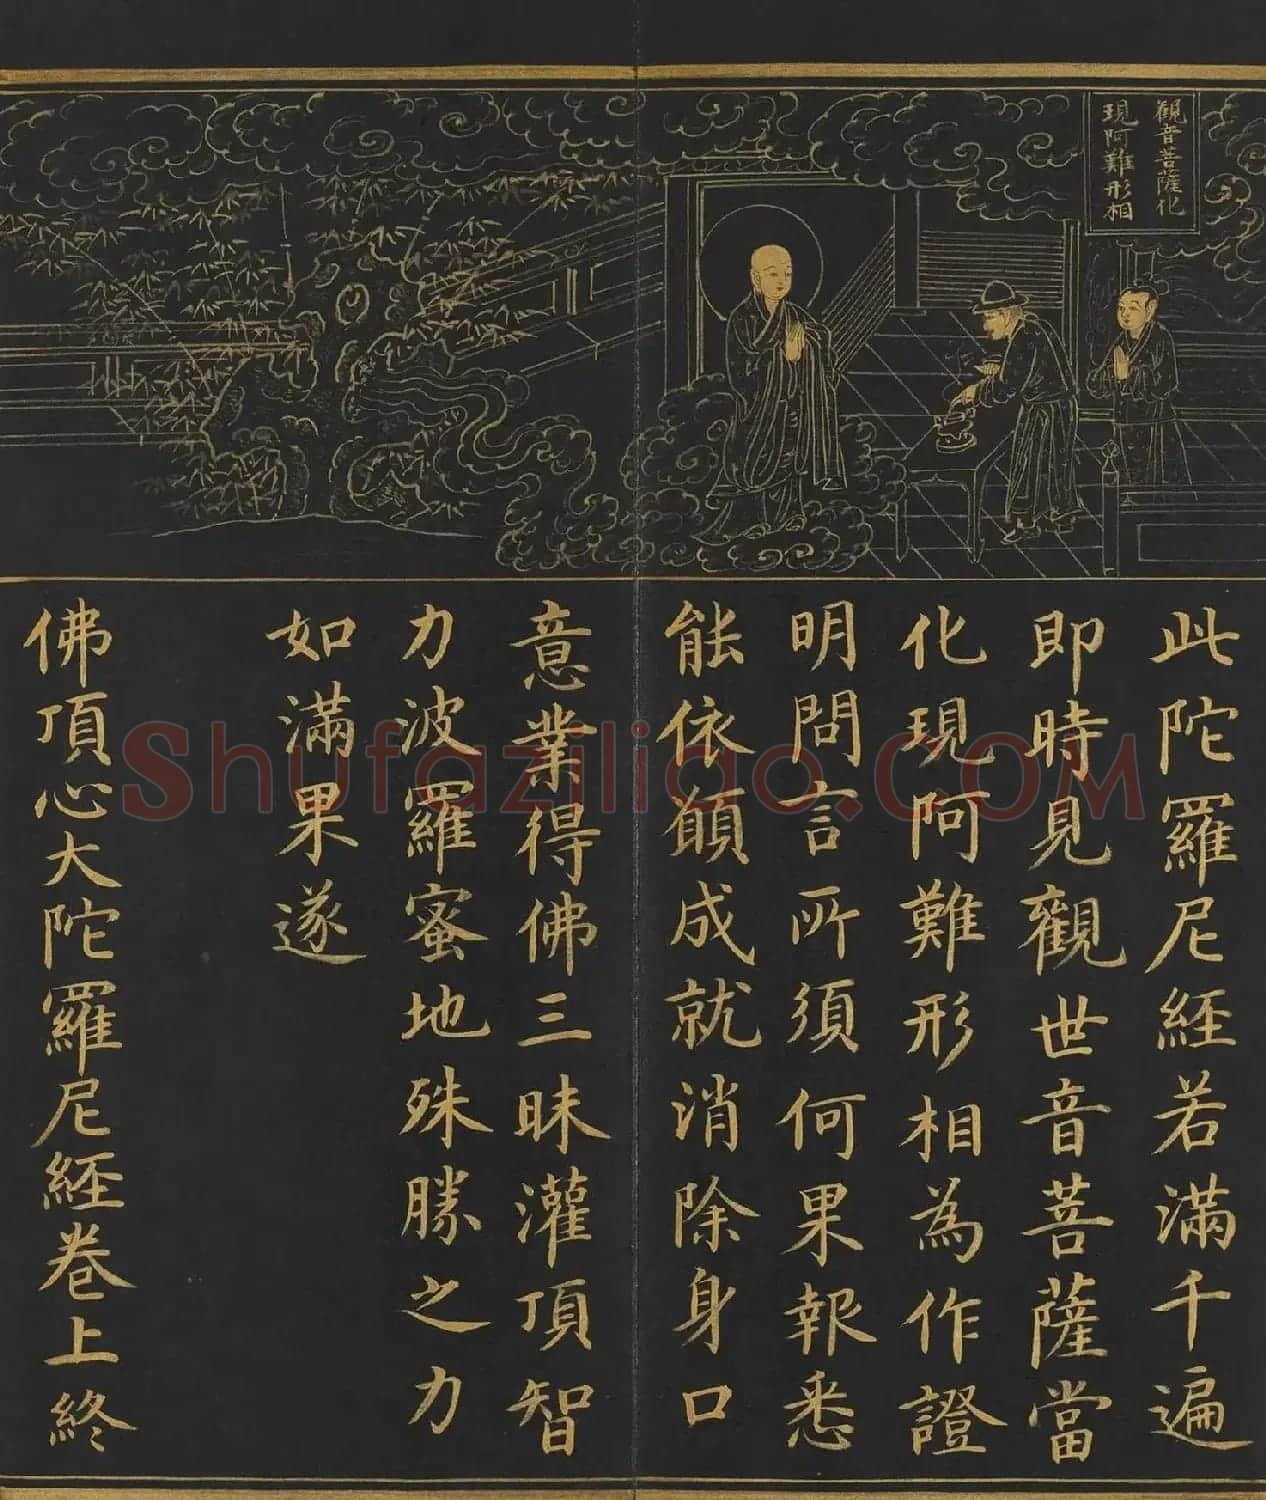 觀音菩薩化
現阿難形相
此陀羅尼經若滿千遍
即時見觀世音菩薩當
化現阿難形相為作證
明問言所須何果報悉
能依願成就消除身口
意業得佛三昧灌頂智
力波羅蜜地殊勝之力
如滿果遂
佛頂心大陀羅尼經卷上終
Shufaziliao.COM